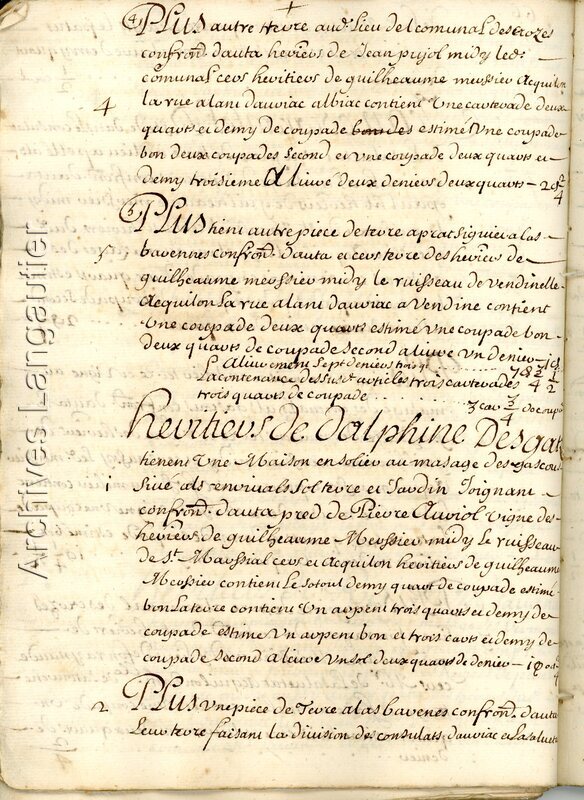 4 Plus autre terre aud. lieu del comunal des crozes
confrond. d'auta heritiers de Jean pujol midy led.
comunal cers heritiers de guilheaume meyssier acquilon
4 la rue alant dauriac albiac contient Une carterade deux
quarts et demy de coupade estimé Une coupade
bon deux coupades second et vne coupade deux quarts et
demy troisieme Aliuré deux deniers deux quarts 2d 2/4
5 Plus tient autre piece de terre a prat siguier a las
5 barennes confrond. d'auta et cers terre des heritiers de
guilheaume meyssier midy le ruisseau de vendinelle
Acquilon La rue alant dauriac a Vendine contient
Une coupade deux quarts estimé Vne coupade bon
deux quarts de coupade second aliuré vn denier 1d
Aliurement sept deniers
La contenance des susd. articles trois carterades
trois quarts de coupade
3 car 3/4 de coup
heritiers de dalphine Desgat
tienent Une Maison en solier au masage des gascous
1 Sive als Sol terre et Jardin Joignant
confrond. d'auta pred de Pierre Auriol vigne des
heritiers de guilheaume Meyssier midy Le ruisseau
de St. Marssial cers et Acquilon heritiers de guilheaume
Meyssier contient Le sotoul demy quart de coupade estimé
bon La terre contient Un arpent trois quarts et demy de
coupade estimé Un arpent bon et trois carts et demy de
coupade second aliuré Un sol deux quarts de denier
2 Plus Vne piece de Terre a las barenes confrond. d'auta
Leur terre faisant la division des consulats dauriac et Lasalvetat
Archives Langautier